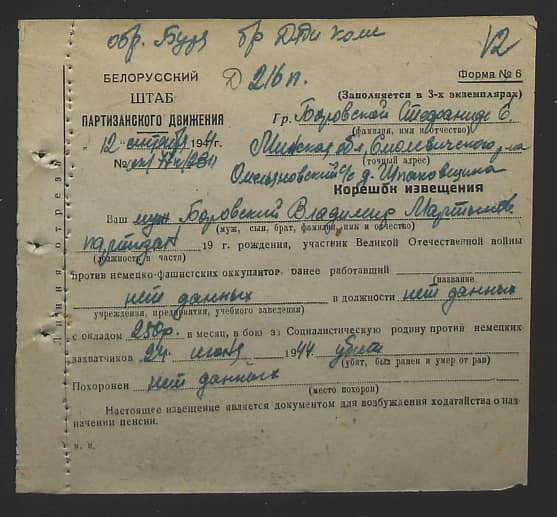 отр. Буря бр Дяди Коли
12
БЕЛОРУССКИЙ
ШТАБ
ПАРТИЗАНСКОГО ДВИЖЕНИЯ
Д 216 п.
Форма № 6
(Заполняется в 3-х экземплярах)
Гр. Боровской Стефаниде С.
(фамилия, имя и отчество)
12 октября 1944
Минская обл. Смолевичского р-на
(точный адрес)
№
с/с д.
Корешок извещения
Ваш муж Боровский Владимир Мартынов.
(муж, сын, брат, фамилия, имя и отчество)
партизан 19 г. рождения, участник Великой Отечественной войны
(должность в части)
против немецко-фашистских оккупантов, ранее работавший
(название
нет данных в должности нет данных
учреждения, предприятия, учебного заведения)
с окладом 250р. в месяц, в бою за Социалистическую родину против немецких
захватчиков 24 июня 1944 убит
(убит, был ранен и умер от ран)
Похоронен нет данных
(место похорон)
Настоящее извещение является документом для возбуждения ходатайства о наз-
начении пенсии.
м. п.
Линия отреза